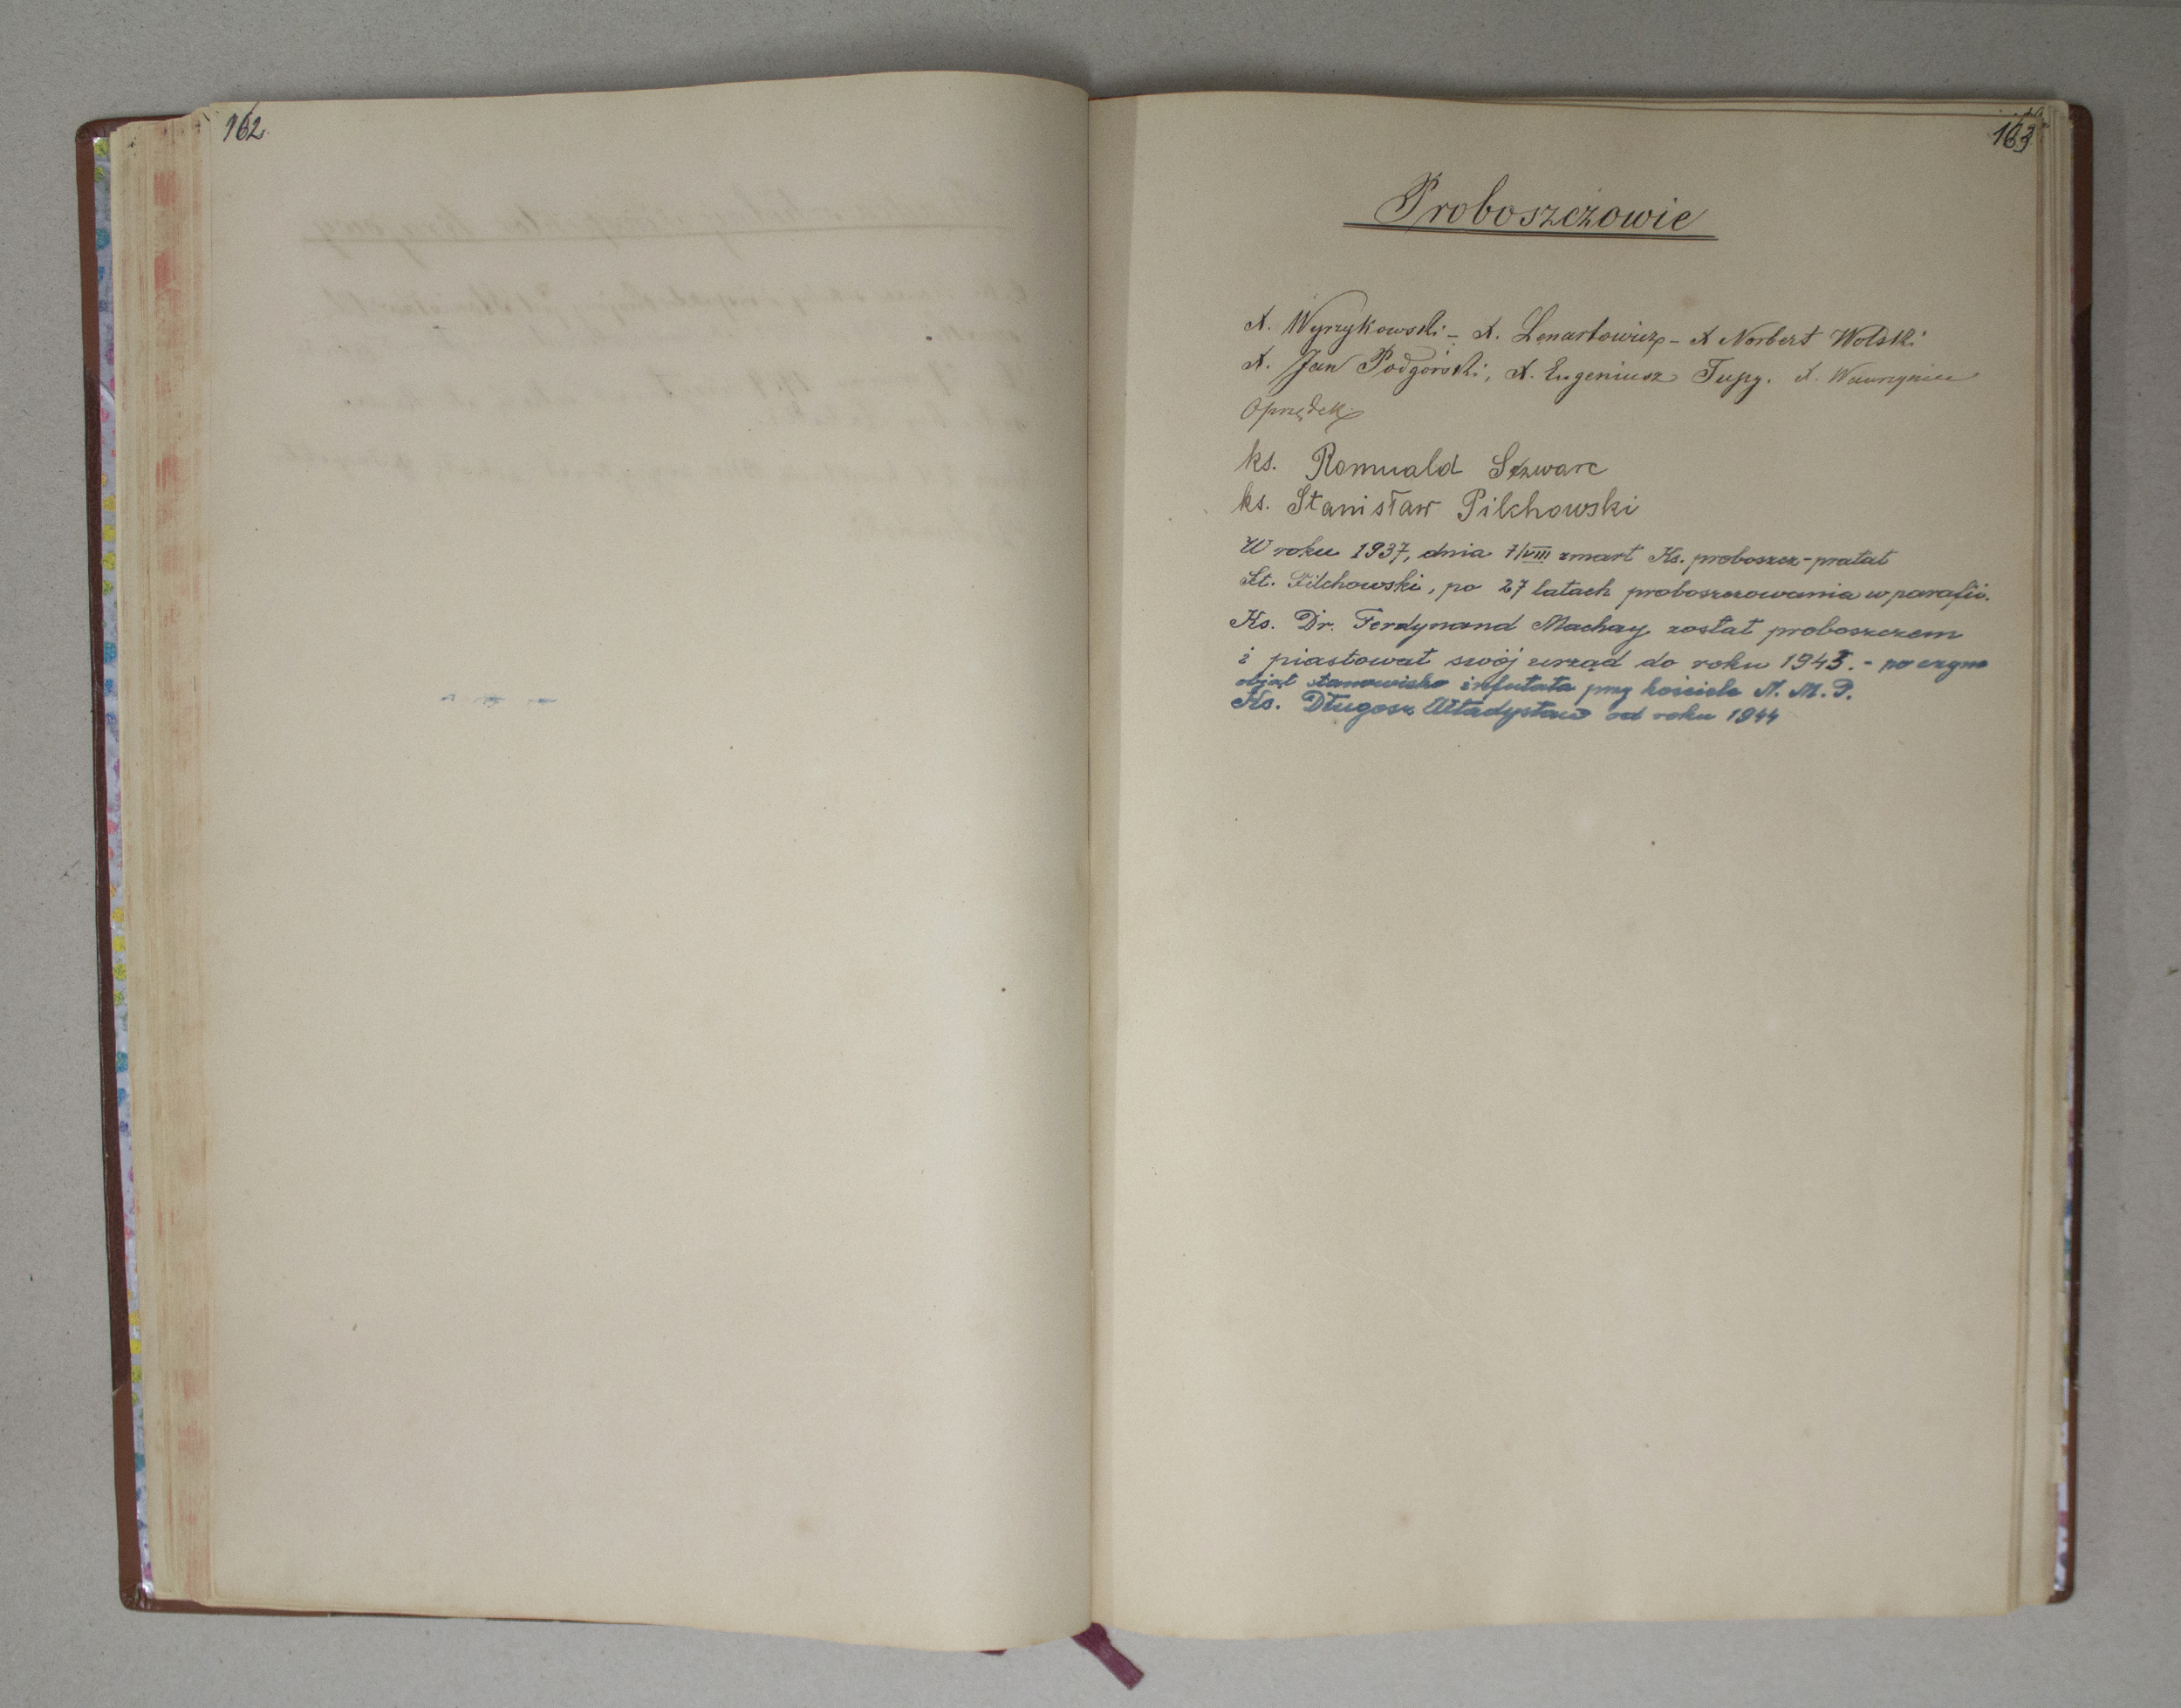 162.
163
Proboszczowie
X. Wyrzykowski - X. Lenartowicz - X Norbert Wolski
X. Jan Podgórski, X. Eugeniusz Tupy. X. Wawrzyniec
Oprzędek
ks. Romuald Szwarc
ks. Stanisław Pilchowski
W roku 1937, dnia 7/VIII zmarł Ks. proboszcz-prałat
St. Pilchowski, po 27 latach proboszczowania w parafii.
Ks. Dr. Ferdynand Machay został proboszczem
i piastował swój urząd do roku 1943. - po czym
objął stanowisko infułata przy kościele N. M. P.
Ks. Długosz Władysław od roku 1944